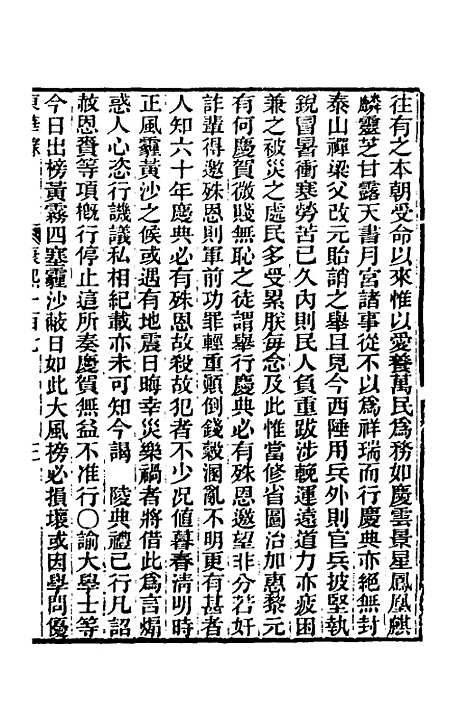 往有之本朝受命以來惟以愛養萬民爲務如慶雲景星鳳凰麒
麟靈芝甘露天書月宮諸事從不以爲祥瑞而行慶典亦絕無封
泰山禪梁父改元貽誚之舉且見今西陲用兵外則官兵披堅執
銳冒暑衝寒勞苦已久內則民人負重跋涉輓運遠道力亦疲困
兼之被災之處民多受累朕每念及此惟當修省圖治加惠黎元
有何慶賀微賤無恥之徒謂舉行慶典必有殊恩邀望非分若奸
詐輩得邀殊恩則軍前功罪輕重顚倒錢穀溷亂不明更有甚者
人知六十年慶典必有殊恩故殺故犯者不少况值暮春清明時
正風霾黃沙之候或遇有地震日晦幸災樂禍者將借此爲言煽
惑人心恣行譏議私相紀載亦未可知今謁　陵典禮已行凡詔
赦恩賚等項槪行停止這所奏慶賀無益不准行〇諭大學士等
今日出榜黃霧四塞霾沙蔽日如此大風榜必損壞或因學問優
東華錄　康熙一百七　三